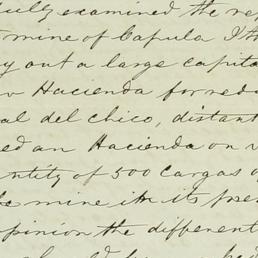 fully examined the re
mine of Capula. I th
y out a large capita
Hacienda for redu
al del chico, distant
ed an Hacienda on
ntity of 500 cargas o
he mine in its pres
opinion the different